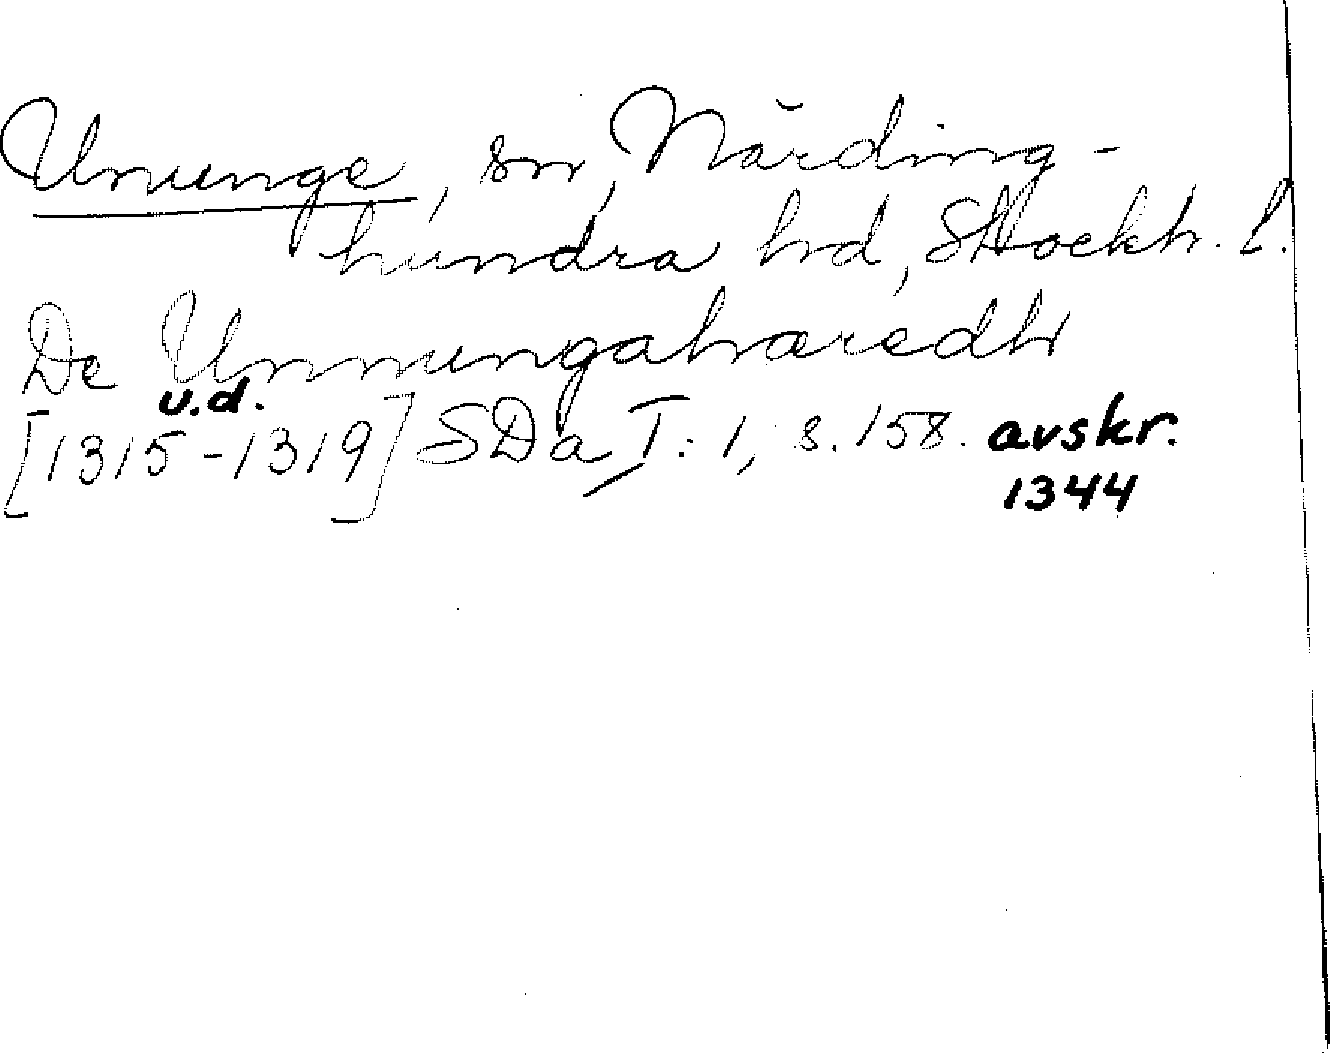 Ununge, sn, Närding-
hundra hd, Stockh. l.
De Unnungaharædh
u.d.
[1315-1319] SDa I: 1, s. 158. avskr.
1344